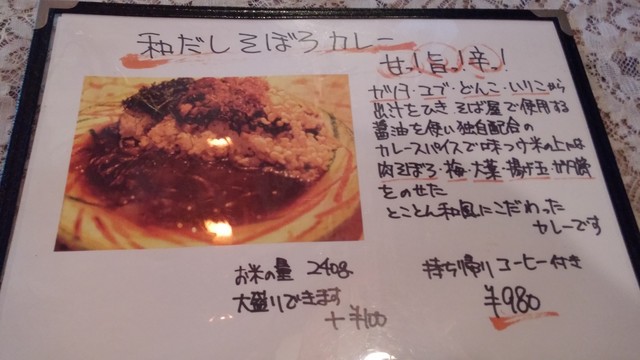 和だしそぼろカレー
甘っ!旨っ!辛っ!
ガタ・コブ・どんこ・いりこから
出汁をひき そば屋で使用する
醤油を使い独自配合の
カレースパイスで味つけ 米の上には
肉そぼろ・梅・大葉・揚げ玉
をのせた
とことん和風にこだわった
カレーです
お米の量 240g
大盛りできます
+¥100
持ち帰りコーヒー付き
¥980